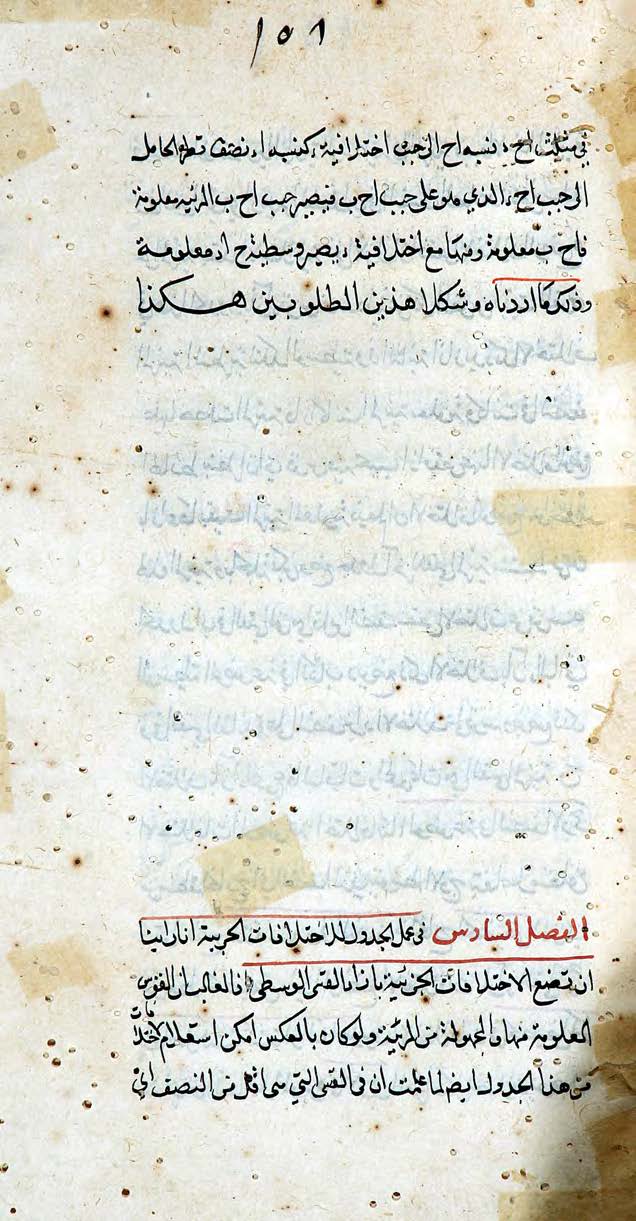 ١٥٨
في مثلث اح ء نسبة اح الى جيب اختلافية ء كنسبة ا ء نصف قطر الحامل
الى جيب اح ء الذي هو على جيب اح ب فيصير جيب اح ب المرئيه معلومة
فاح ب معلومة ومنها مع اختلافية ء يصير وسطية ح ا ء معلومة
وذلك ما اردناه وشكلا هذين المطلوبين هكذا
الفصل السادس في عمل الجدول للاختلافات الجزيية انا راينا
ان نضع الاختلافات الجزئية بازاء القسي الوسطى اذ الغالب ان القوس
المعلومة منها والمجهولة من المرئية ولو كان بالعكس امكن استعلام الاختلافات
من هذا الجدول ايضا لما علمت ان في القسي التي هي اقل من النصف